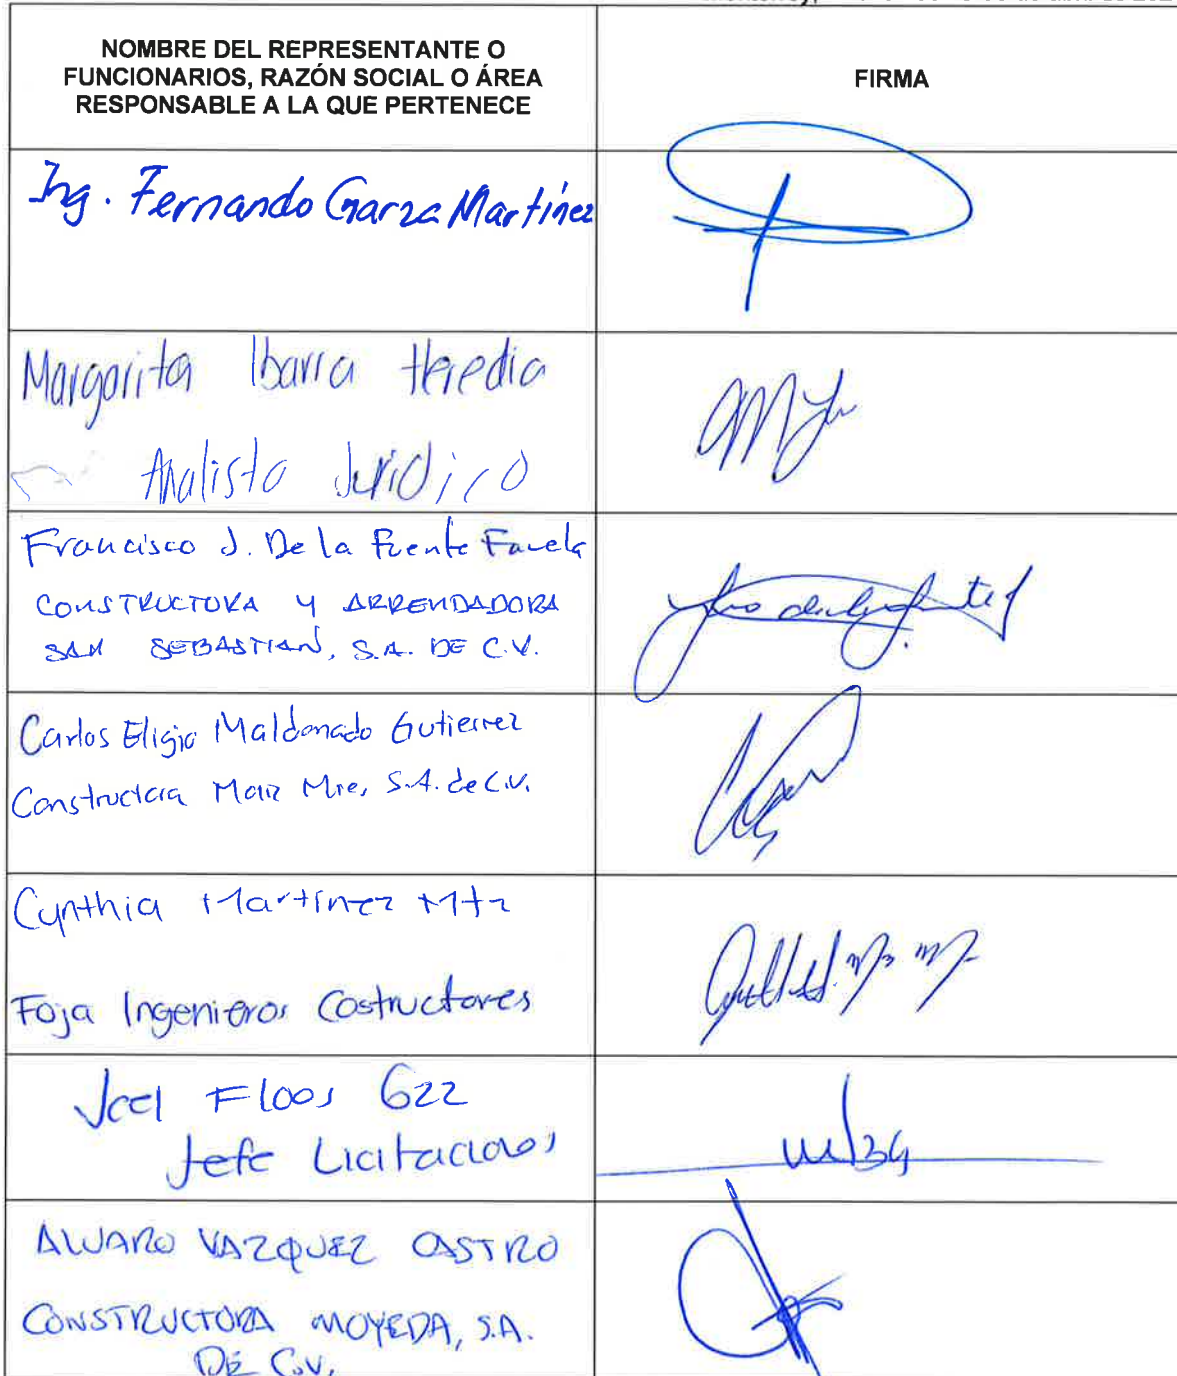 NOMBRE DEL REPRESENTANTE O
FUNCIONARIOS, RAZÓN SOCIAL O ÁREA
RESPONSABLE A LA QUE PERTENECE
FIRMA
Ing. Fernando Garza Martínez
Margarita Ibarra Heredia
Analista Jurídico
Francisco J. De la Fuente Favela
CONSTRUCTORA Y ARRENDADORA
SAN SEBASTIAN, S.A. DE C.V.
Carlos Eligio Maldonado Gutierrez
Constructora Maiz Mier, S.A. de C.V.
Cynthia Martínez Mtz
Foja Ingenieros Costructores
Joel Flores
Jefe Licitaciones
ALVARO VAZQUEZ CASTRO
CONSTRUCTORA MOYEDA, S.A.
DE C.V.